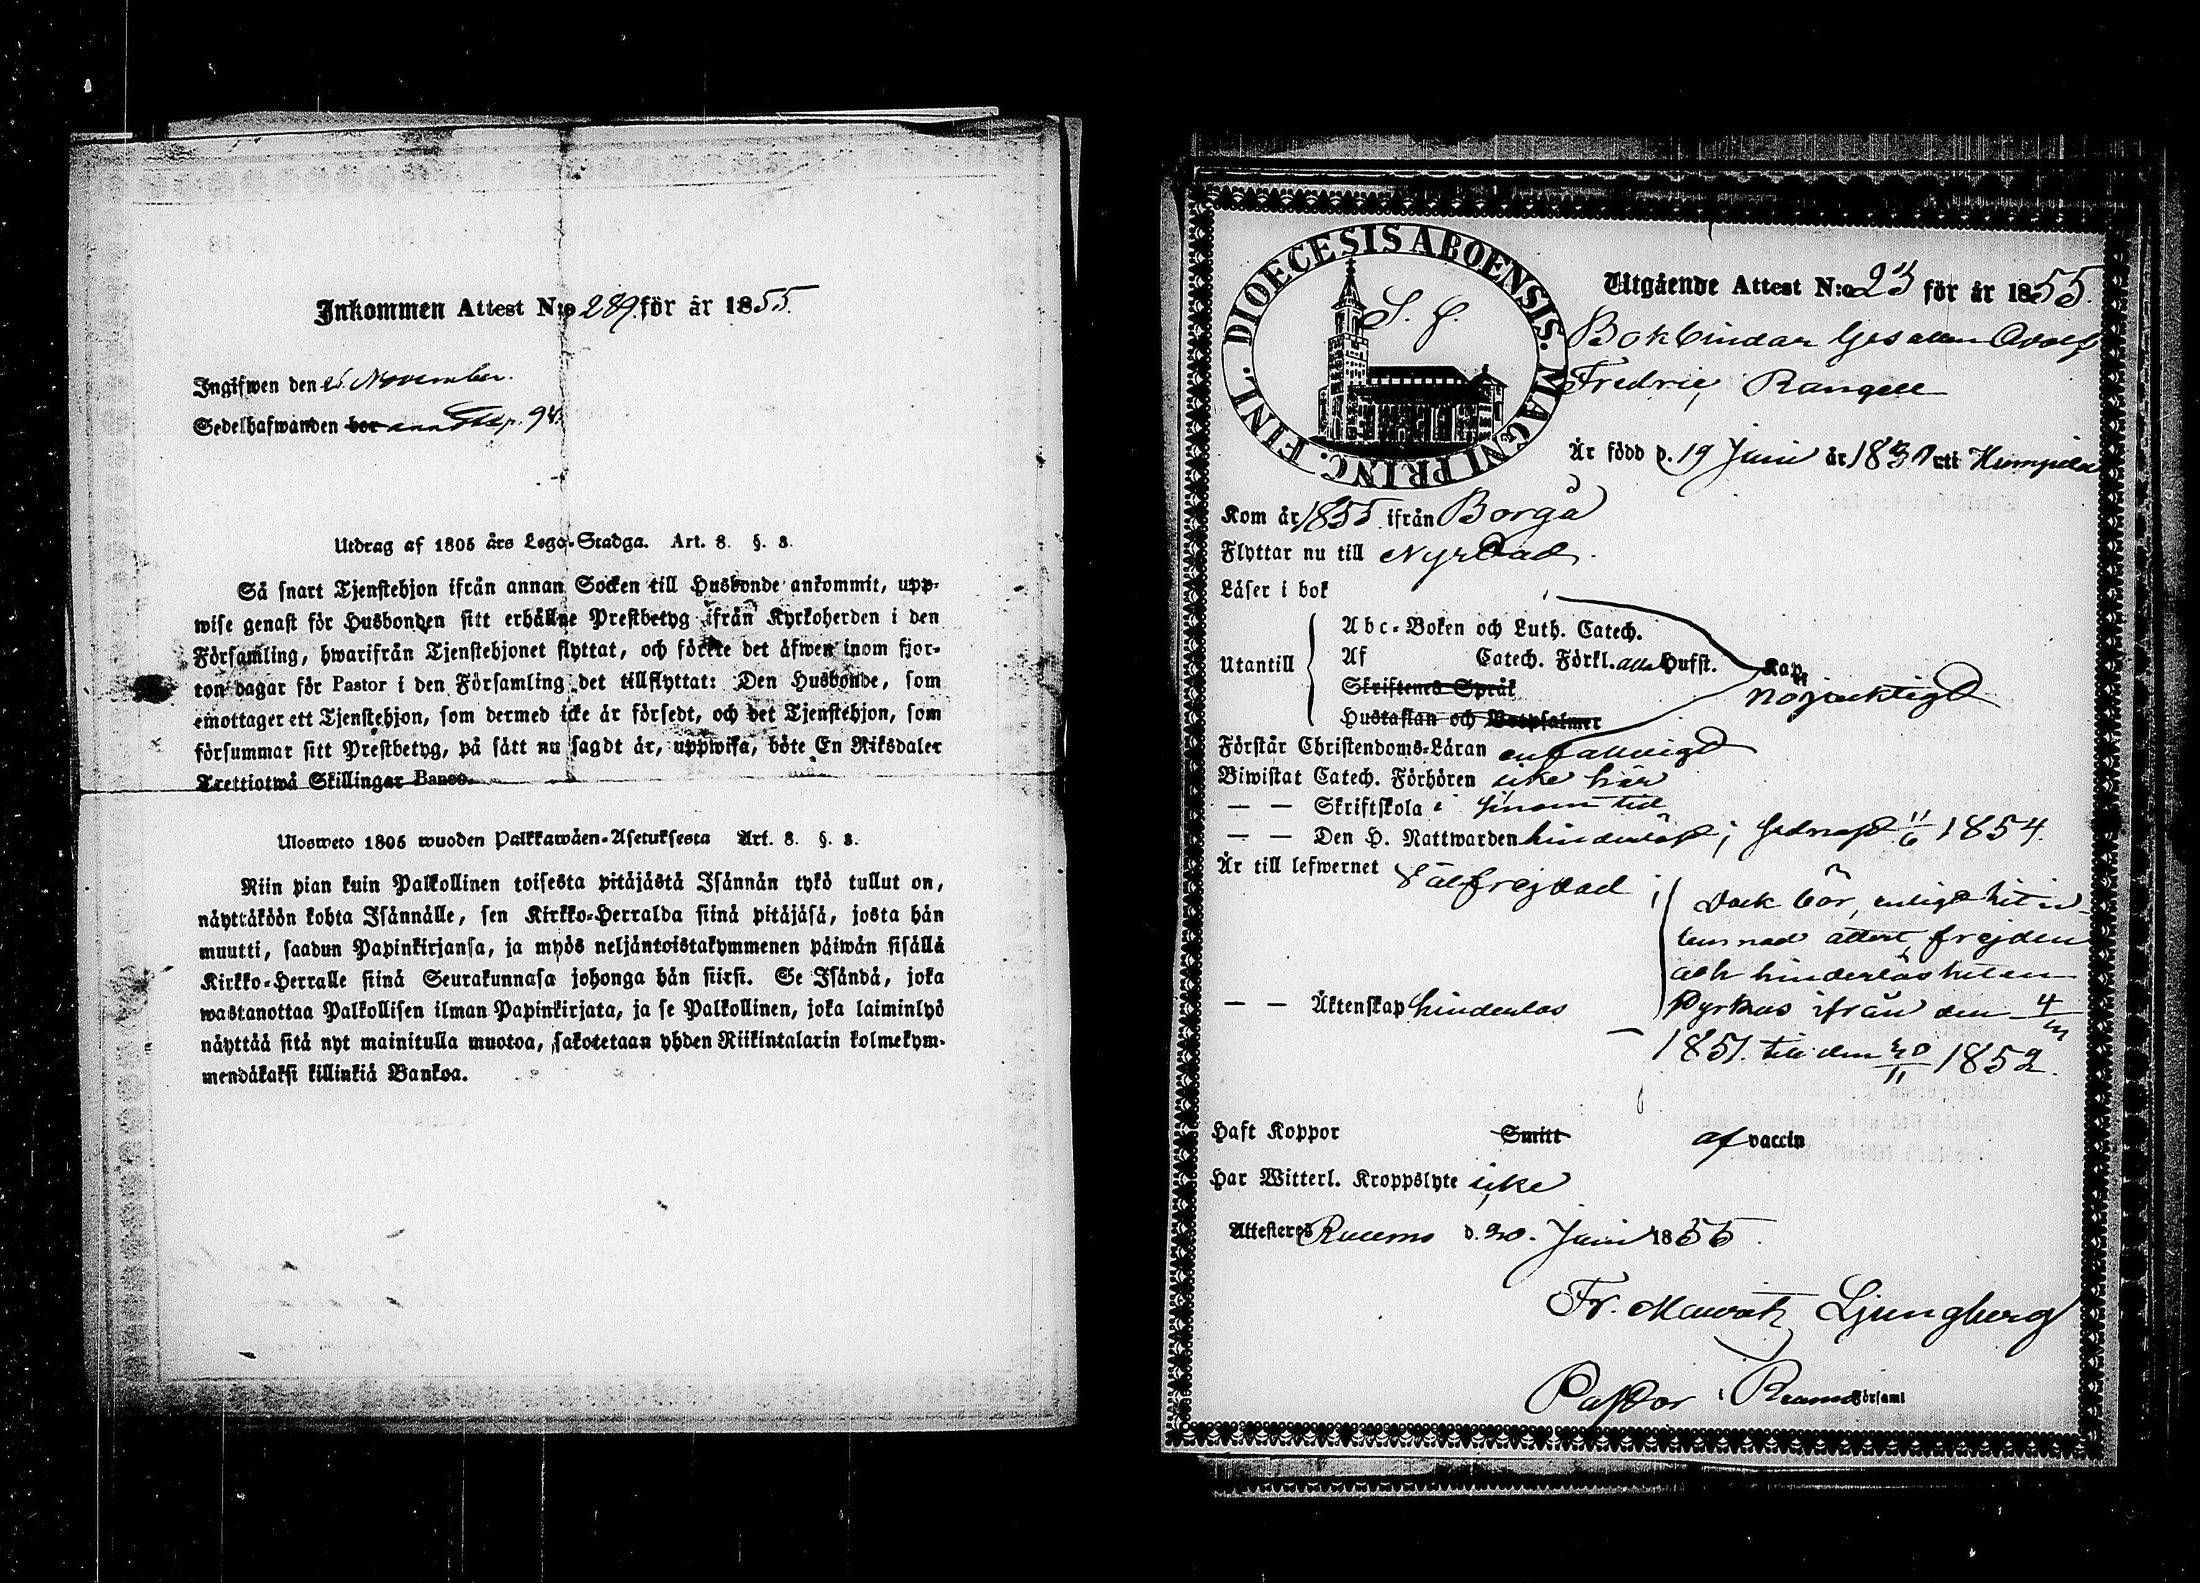 Inkommen Attest N:o 289. för år 1855.
Ingifwen den 25 November.
Sedelhafwanden bor
Utdrag af 1805 års Lego-Stadga. Art. 8. §. 3.
Så snart Tjenstehjon ifrån annan Socken till Husbonde ankommit, upp-
wise genast för Husbonden sitt erhållne Prestbetyg ifrån Kyrkoherden i den
Församling, hwarifrån Tjenstehjonet flyttat, och förete det äfwen inom fjor-
ton dagar för Pastor i den Församling det tillflyttat: Den Husbonde, som
emottager ett Tjenstehjon, som dermed icke är försedt, och det Tjenstehjon, som
försummar sitt Prestbetyg, på sätt nu sagdt är, uppwisa, böte En Riksdaler
Trettiotwå Skillingar Banco.
Ulosweto 1805 wuoden Palkkawäen-Asetuksesta Art. 8. §. 3.
Niin pian kuin Palkollinen toisesta pitäjästä Isännän tykö tullut on,
näyttäköön kohta Isännälle, sen Kirkko-Herralda siinä pitäjäsä, josta hän
muutti, saadun Papinkirjansa, ja myös neljäntoistakymmenen päiwän sisällä
Kirkko-Herralle siinä Seurakunnasa johonga hän siirsi. Se Isändä, joka
wastanottaa Palkollisen ilman Papinkirjata, ja se Palkollinen, joka laiminlyö
näyttää sitä nyt mainitulla muotoa, sakotetaan yhden Riikintalarin kolmekym-
mendäkaksi killinkiä Bankoa.
DIOECESIS ABOENSIS. MAGNI PRINC. FINL.
Utgående Attest N:o 23 för år 1855.
Bokbindar Gesällen Adolf
Fredric Rangell
Är född d. 19 Juni år 1830 uti Humpila
Kom år 1855 ifrån Borgå
Flyttar nu till Nystad.
Läser i bok
Utantill
Abc-Boken och Luth. Catech.
Af Catech. Förkl. alla Hufst. Kap.
Skriftenes Språk
nöjaktigt
Hustaflan och Botpsalmer
Förstår Christendoms-Läran enfaldigt
Biwistat Catech. Förhören icke här
— — Skriftskola i sinom tid
— — Den H. Nattwarden hinderlöst; sednast 11/6 1854.
Är till lefwernet välfrejdad;
Dock bör, enligt hit in-
lemnad attest, frejden
och hinderlösheten
— — Äktenskap hinderlös
styrkas ifrån den 4/3
1851. till den 30/11 1852.
Haft Koppor Smitt af vaccin
Har Witterl. Kroppslyte icke
Attesteras Raumo d. 20. Juni 1855.
Fr. Ljungberg
Pastor i Raumo Församl